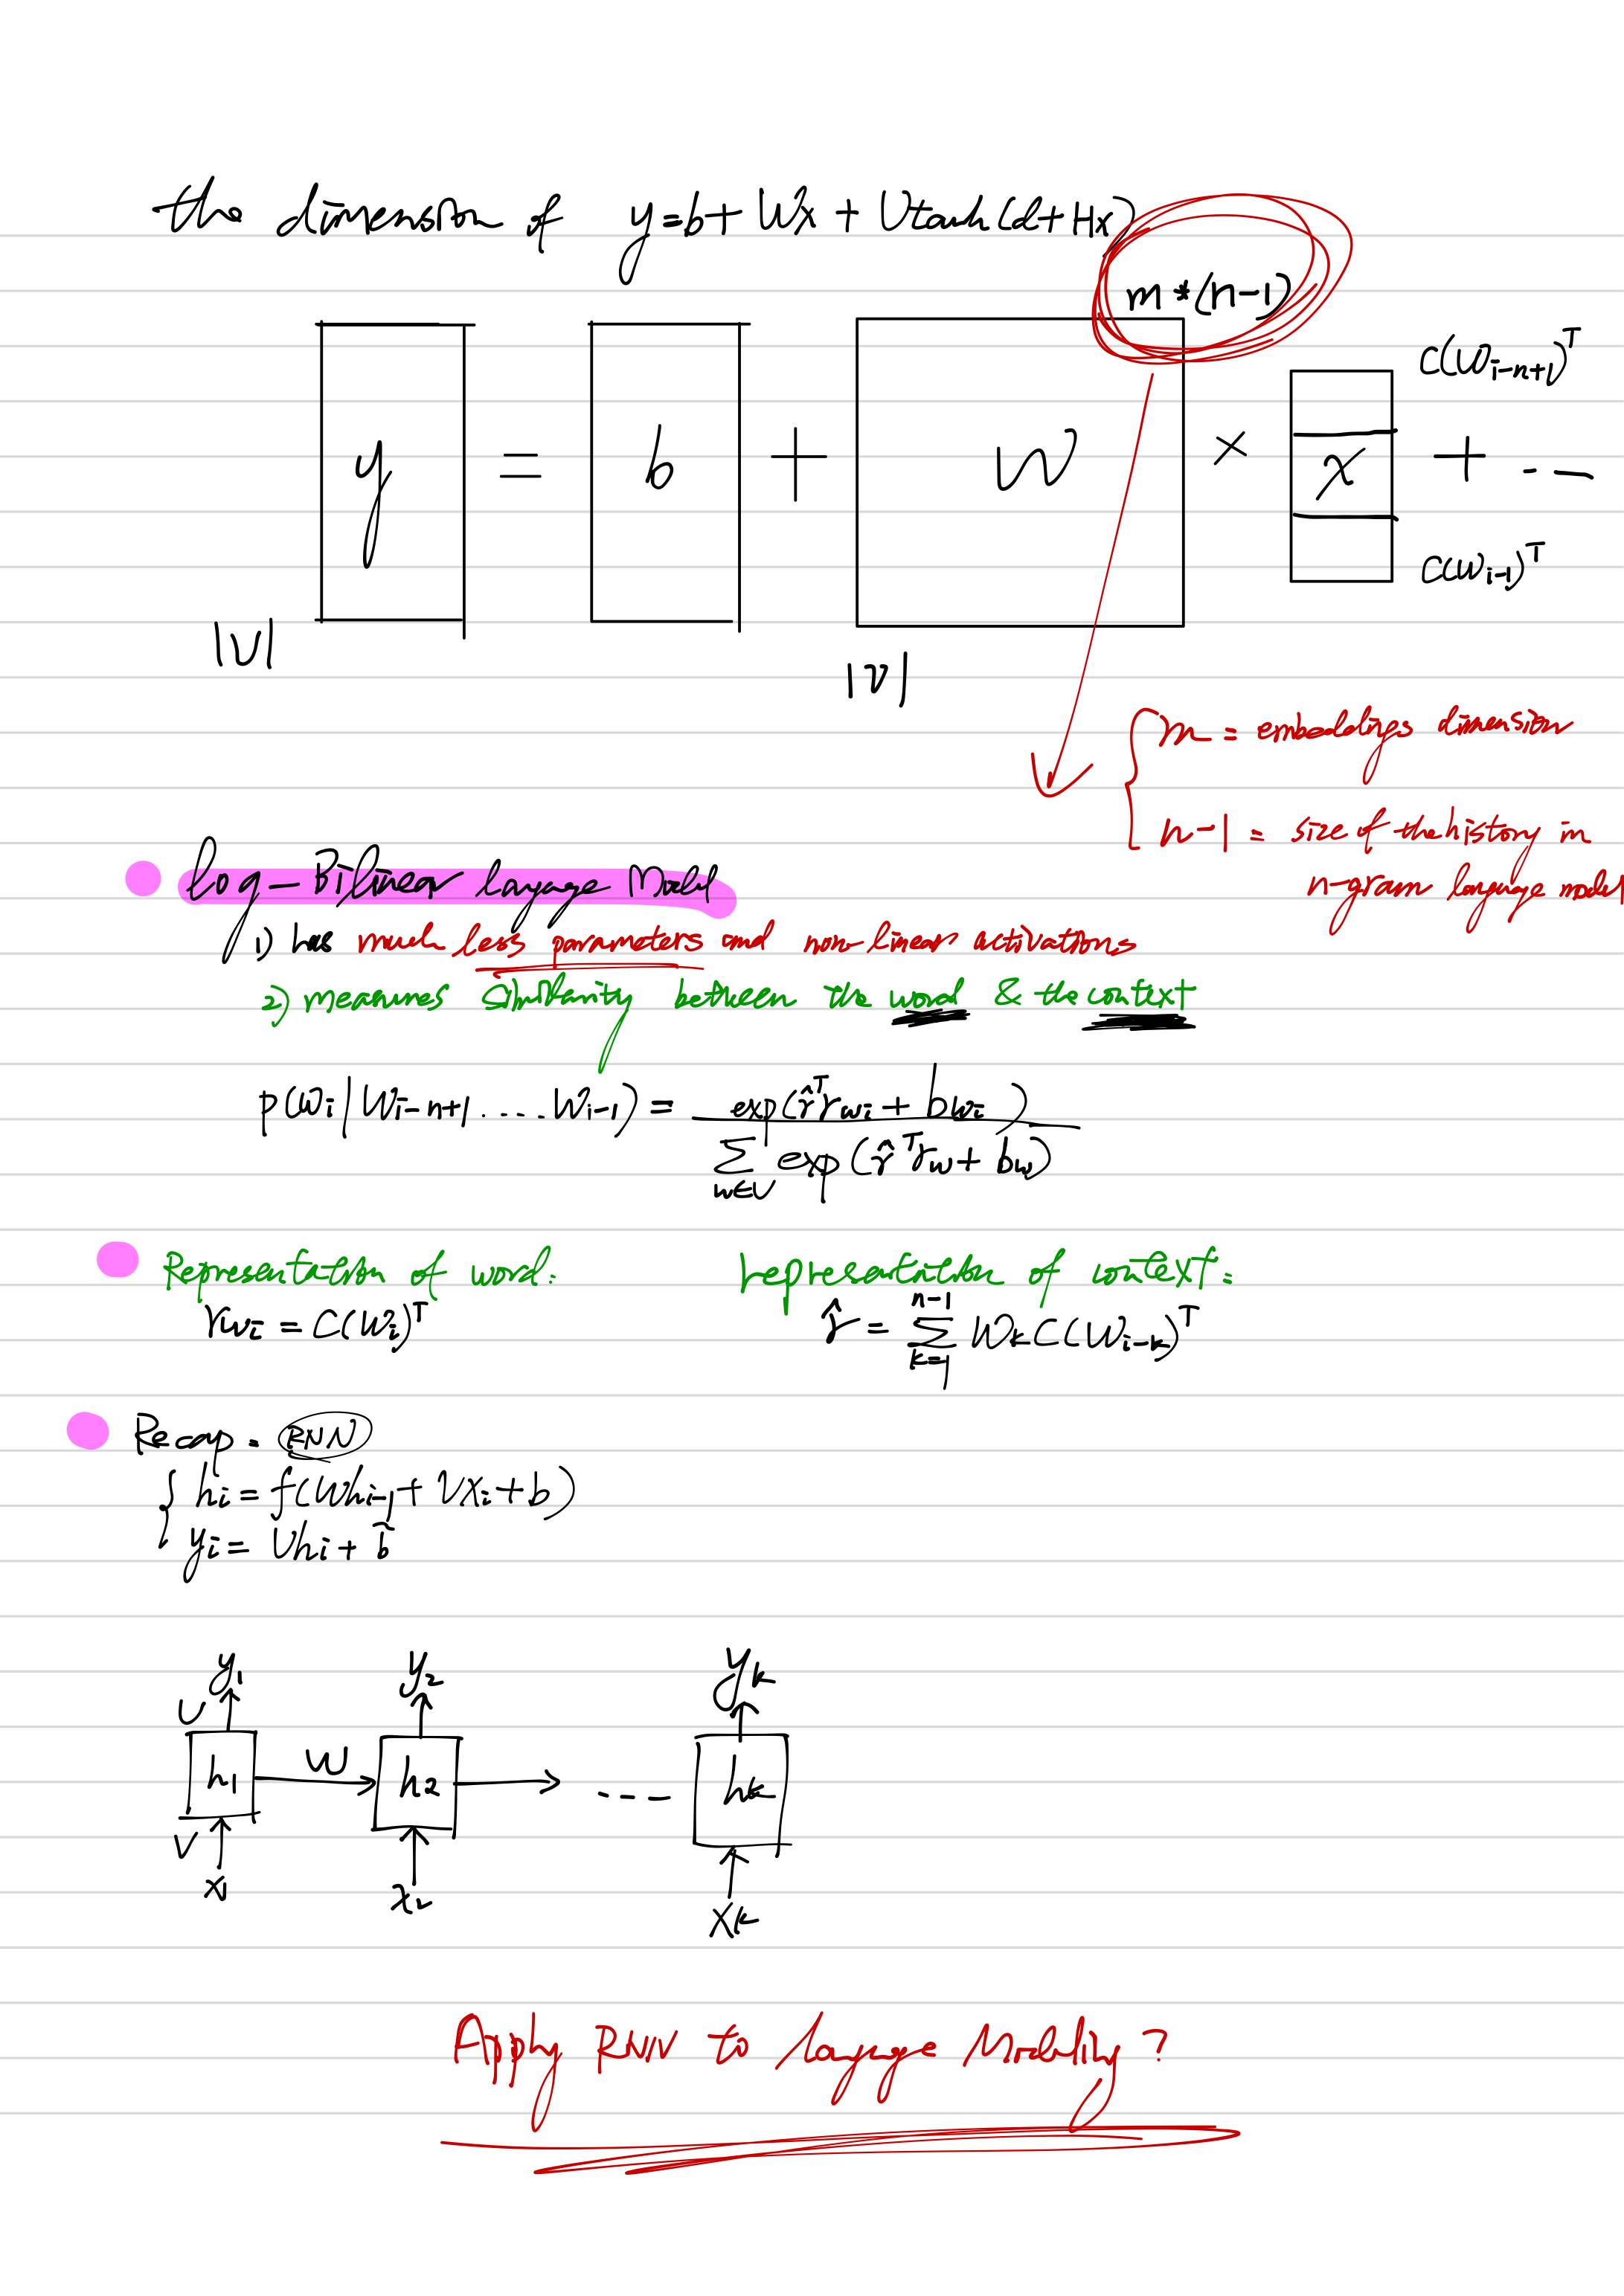 the dimension of y=b+Wx+Utanh(d+Hx)
m*(n-1)
y = b + W × x + ...
C(Wi-n+1)^T
C(Wi-1)^T
|V|
|V|
m = embeddings dimension
n-1 = size of the history in
n-gram language model
Log-Bilinear Language Model
1) has much less parameters and non-linear activations
2) measures similarity between the word & the context
p(wi|Wi-n+1....Wi-1) = exp(r̂^T rwi + bwi) / Σw∈V exp(r̂^T rw + bw)
Representation of word: representation of context:
rwi = C(Wi)^T r̂ = Σ_{k=1}^{n-1} Wk C(Wi-k)^T
Recap: RNN
hi = f(Whi-1 + Vxi + b)
yi = Uhi + b̃
y1 y2 yk
U
h1 W h2 .... hk
V
x1 x2 xk
Apply RNN to language Modeling?